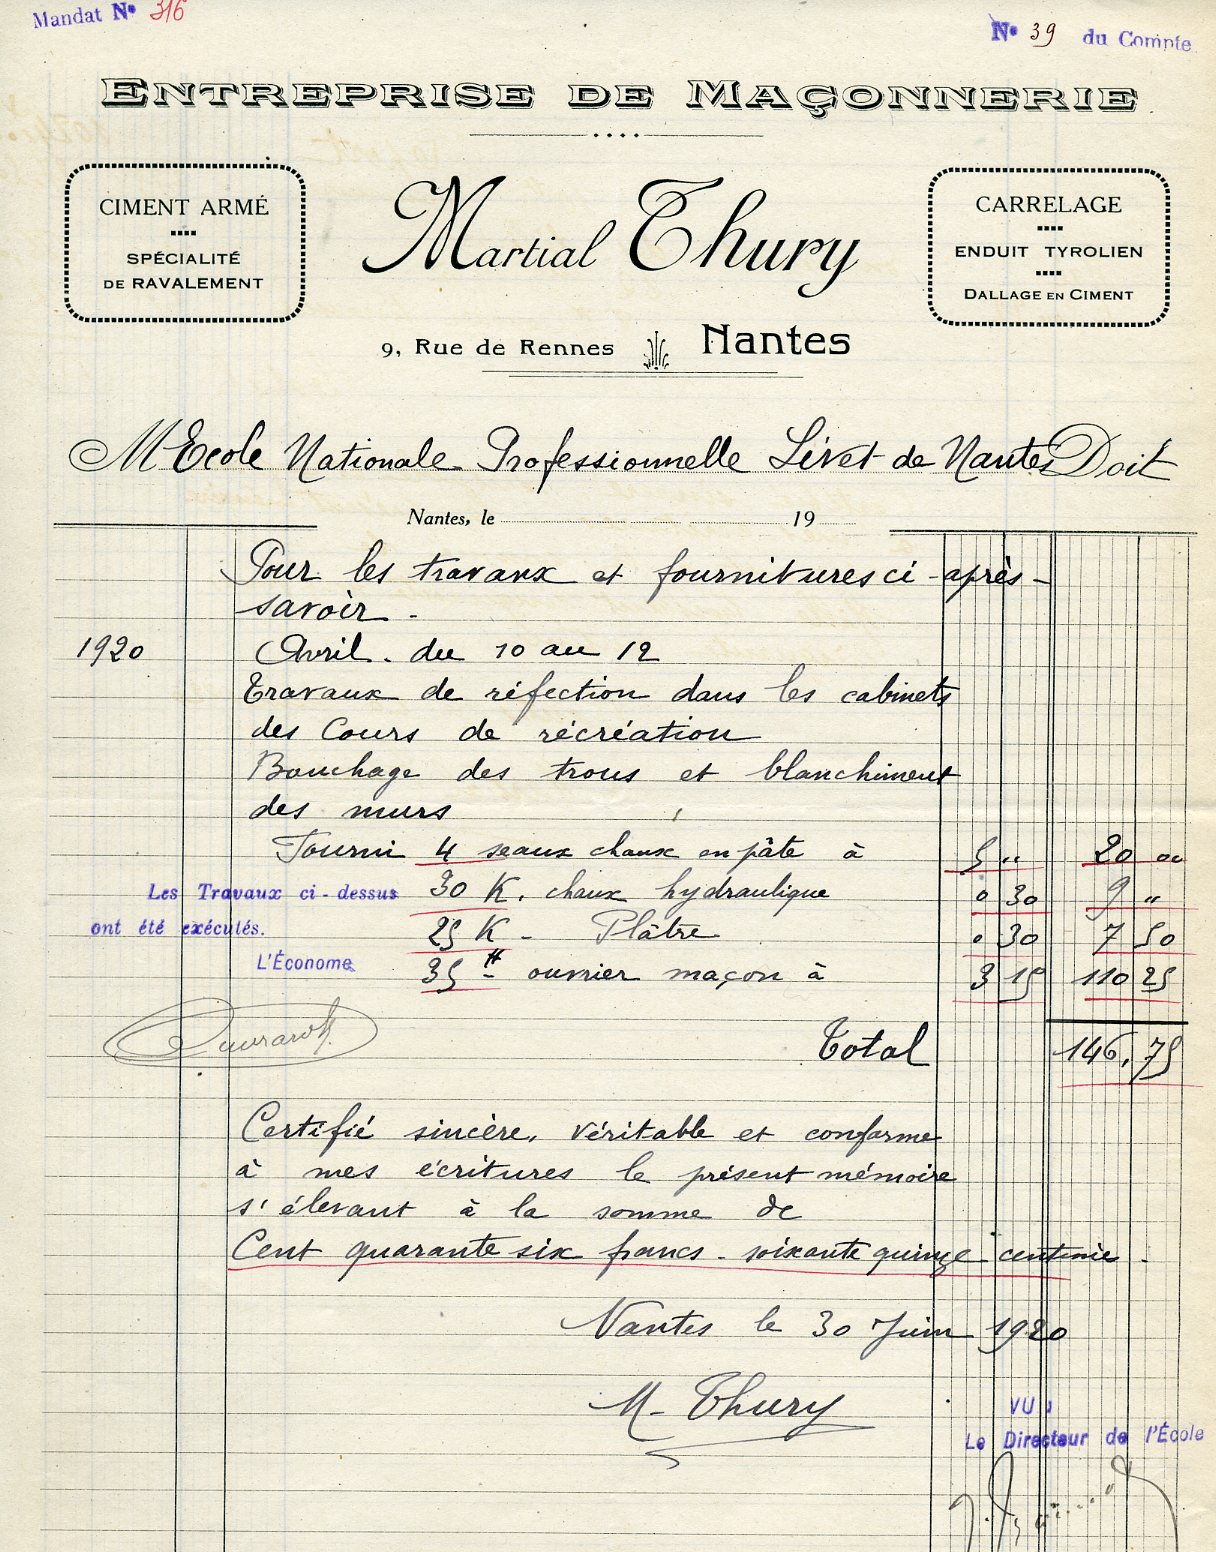 Mandat No 316
No 39 du Compte
ENTREPRISE DE MAÇONNERIE
CIMENT ARMÉ
SPÉCIALITÉ
DE RAVALEMENT
Martial Thury
CARRELAGE
ENDUIT TYROLIEN
DALLAGE EN CIMENT
9, Rue de Rennes Nantes
M Ecole Nationale Professionnelle Livet de Nantes Doit
Nantes, le 19
Pour les travaux et fournitures ci-après-
savoir.
1920 Avril. du 10 au 12
Travaux de réfection dans les cabinets
des Cours de récréation
Bouchage des trous et blanchiment
des murs
Fourni 4 seaux chaux en pâte à 5 " 20 oo
30 K. chaux hydraulique 0 30 9 "
25 K - Plâtre 0 30 7 50
35 H ouvrier maçon à 3 15 110 25
Les Travaux ci-dessus
ont été exécutés.
L'Économe
Total 146,75
Certifié sincère, véritable et conforme
à mes écritures le présent mémoire
s'élevant à la somme de
Cent quarante six francs - soixante quinze centimes.
Nantes le 30 Juin 1920
M. Thury
VU :
Le Directeur de l'École